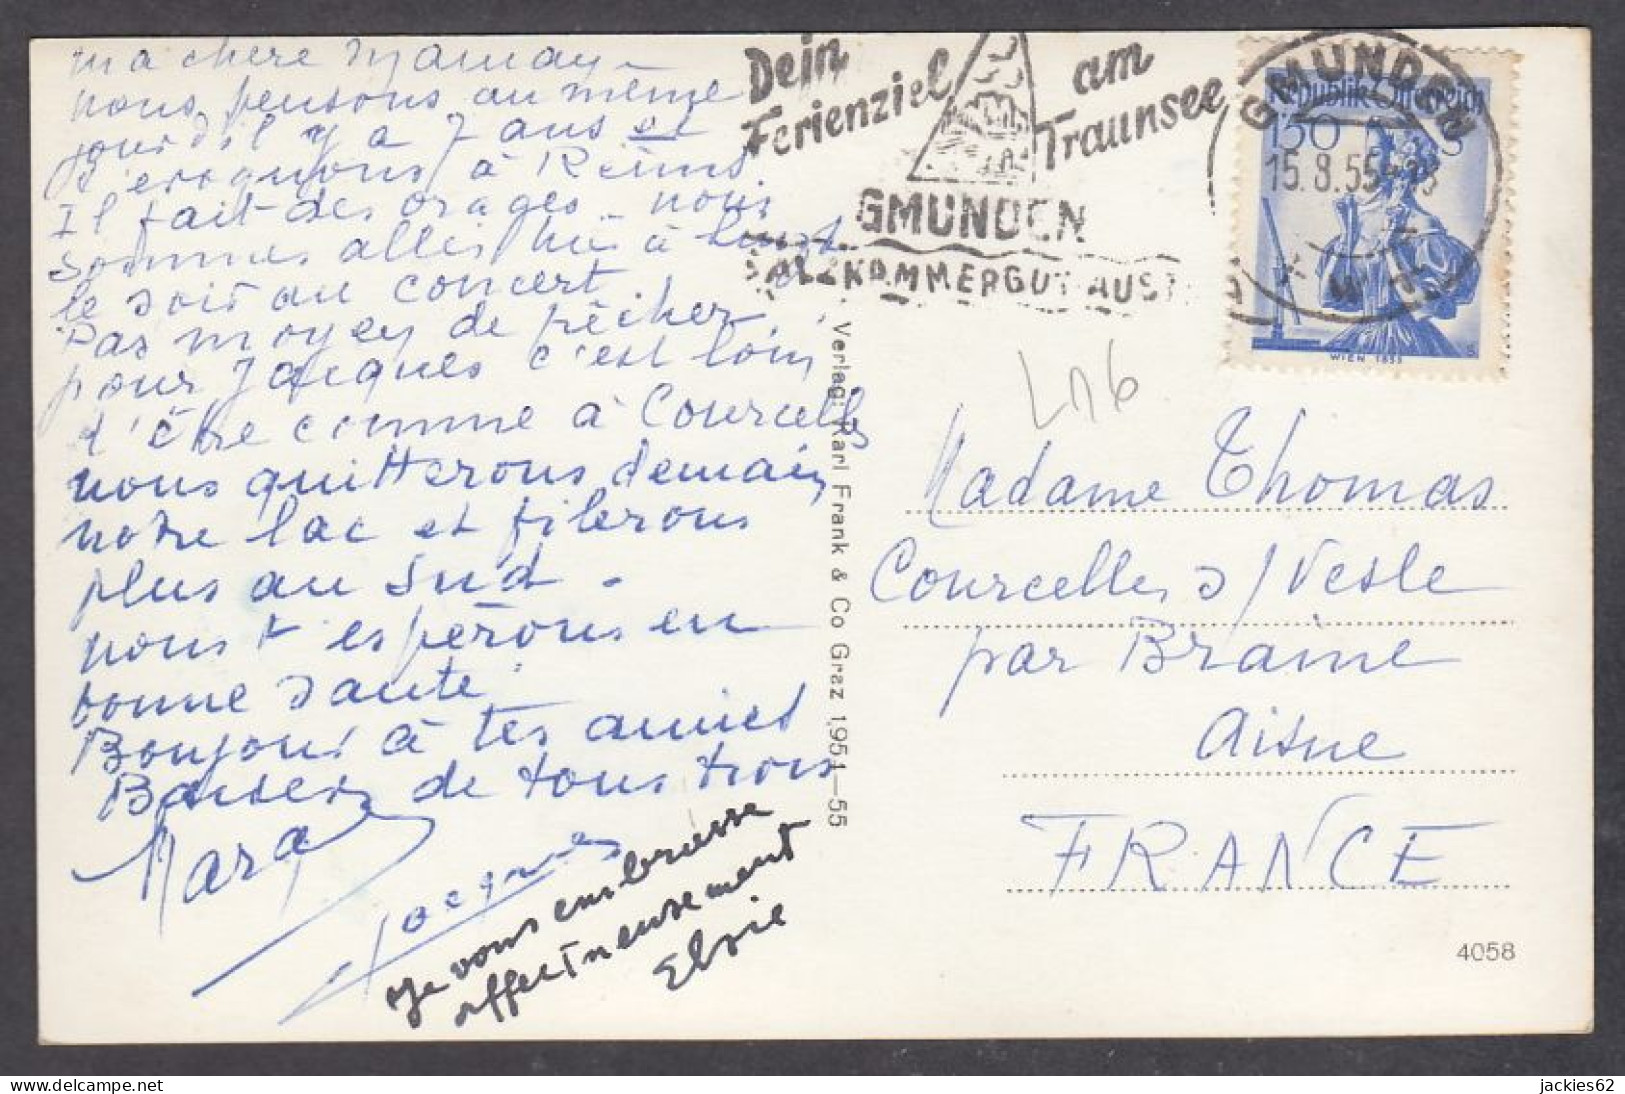 ma chère Maman -
nous pensons au même
jour d'il y a 7 ans et
à Reims
Il fait des orages - nous
sommes allés hier à
le soir au concert
Pas moyen de pêcher
pour Jacques c'est loin
d'être comme à Courcelles
nous quitterons demain
notre lac et filerons
plus au Sud -
nous t'espérons en
bonne santé
Bonjour à tes amies
Baisers de tous trois
Marg
Jacques
Je vous embrasse
affectueusement
Elsie
Dein
Ferienziel
am
Traunsee
GMUNDEN
SALZKAMMERGUT AUST
GMUNDEN
15.8.55
Republik Österreich
150
WIEN 1853
Verlag: Karl Frank & Co Graz 1951—55
Madame Thomas
Courcelles s/Vesle
par Braine
Aisne
FRANCE
4058
jackies62